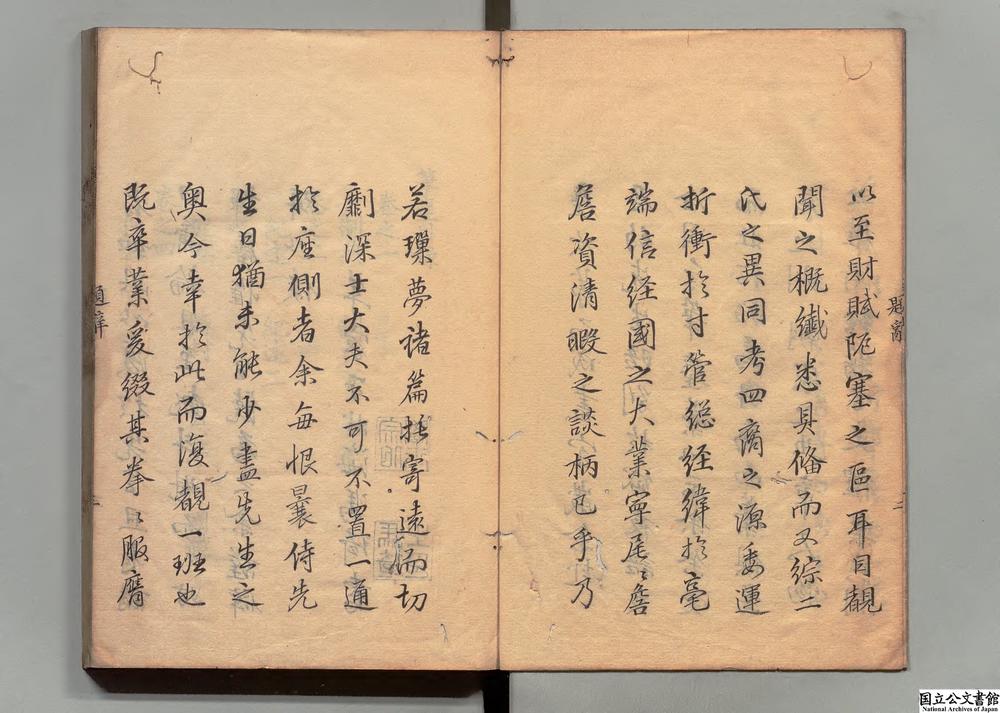 以至財賦阨塞之區耳目覩
聞之概纖悉具俻而又綜二
氏之異同考四裔之源委運
折衝於寸管總經緯於毫
端信經國之大業寧尾〻詹
詹資清暇之談柄已乎乃
若璅夢諸篇托寄遠而切
劘深士大夫不可不置一通
於座側者余每恨曩侍先
生日猶未能少盡先生之
奧今幸於此而復覩一班也
既卒業爰綴其拳〻服膺
題辭
二
題辭
三
国立公文書館
National Archives of Japan